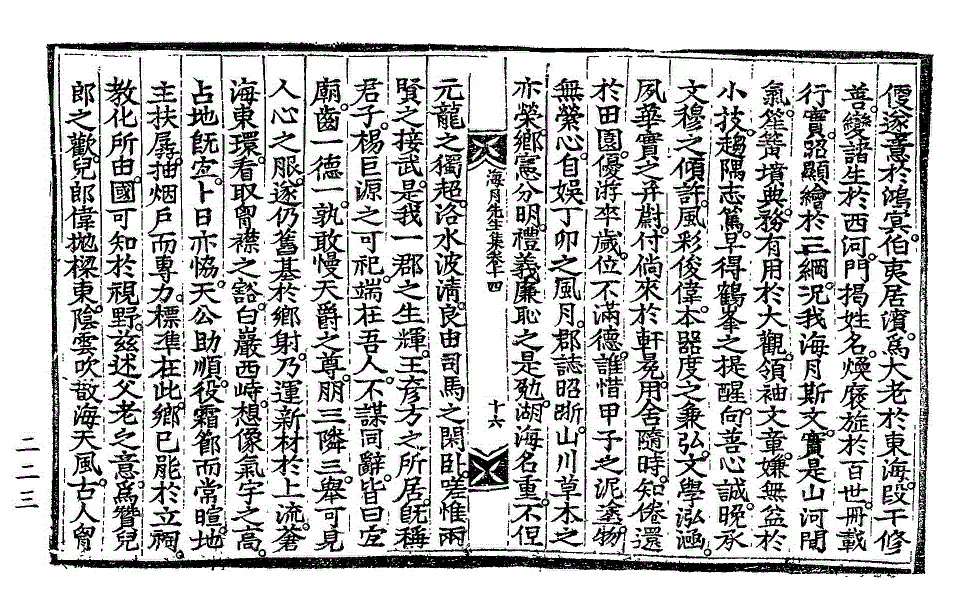 偃遂意於鴻冥伯夷居濱爲大老於東海段干修
善變諸生於西河門揭姓名煥廢旋於百世冊載
行實昭顯繪於三綱況我海月斯文實是山河間
氣筵篝墳典務有用於大觀領袖文章嫌無益於
小技趨隅志篤早得鶴峯之提醒向善心誠晩承
文穆之傾許風彩俊偉本器度之兼弘文學泓涵
夙華實之弁蔚付倘來於軒冕用舍隨時知倦還
於田園優游卒歲位不滿德誰惜甲子之泥塗物
無榮心自娛丁卯之風月郡誌昭晣山川草木之
亦榮鄕憲分明禮義廉恥之是勉湖海名重不但
海月先生集卷十四
十六
元龍之獨超洛水波淸良由司馬之閑臥嗟惟兩
賢之接武是我一郡之生輝王彦方之所居旣稱
君子楊巨源之可祀端在吾人不謀同辭皆曰宜
廟齒一德一孰敢慢天爵之尊朋三隣三擧可見
人心之服遂仍舊基於鄕射乃運新材於上流蒼
海東環看取胷襟之豁白巖西峙想像氣宇之高
占地旣宜卜日亦恊天公助順役霜節而常暄地
主扶孱抽烟戶而專力標準在此鄕已能於立祠
敎化所由國可知於視野玆述父老之意爲贊兒
郎之歡兒郎偉抛樑東陰雲吹散海天風古人胷
二二三